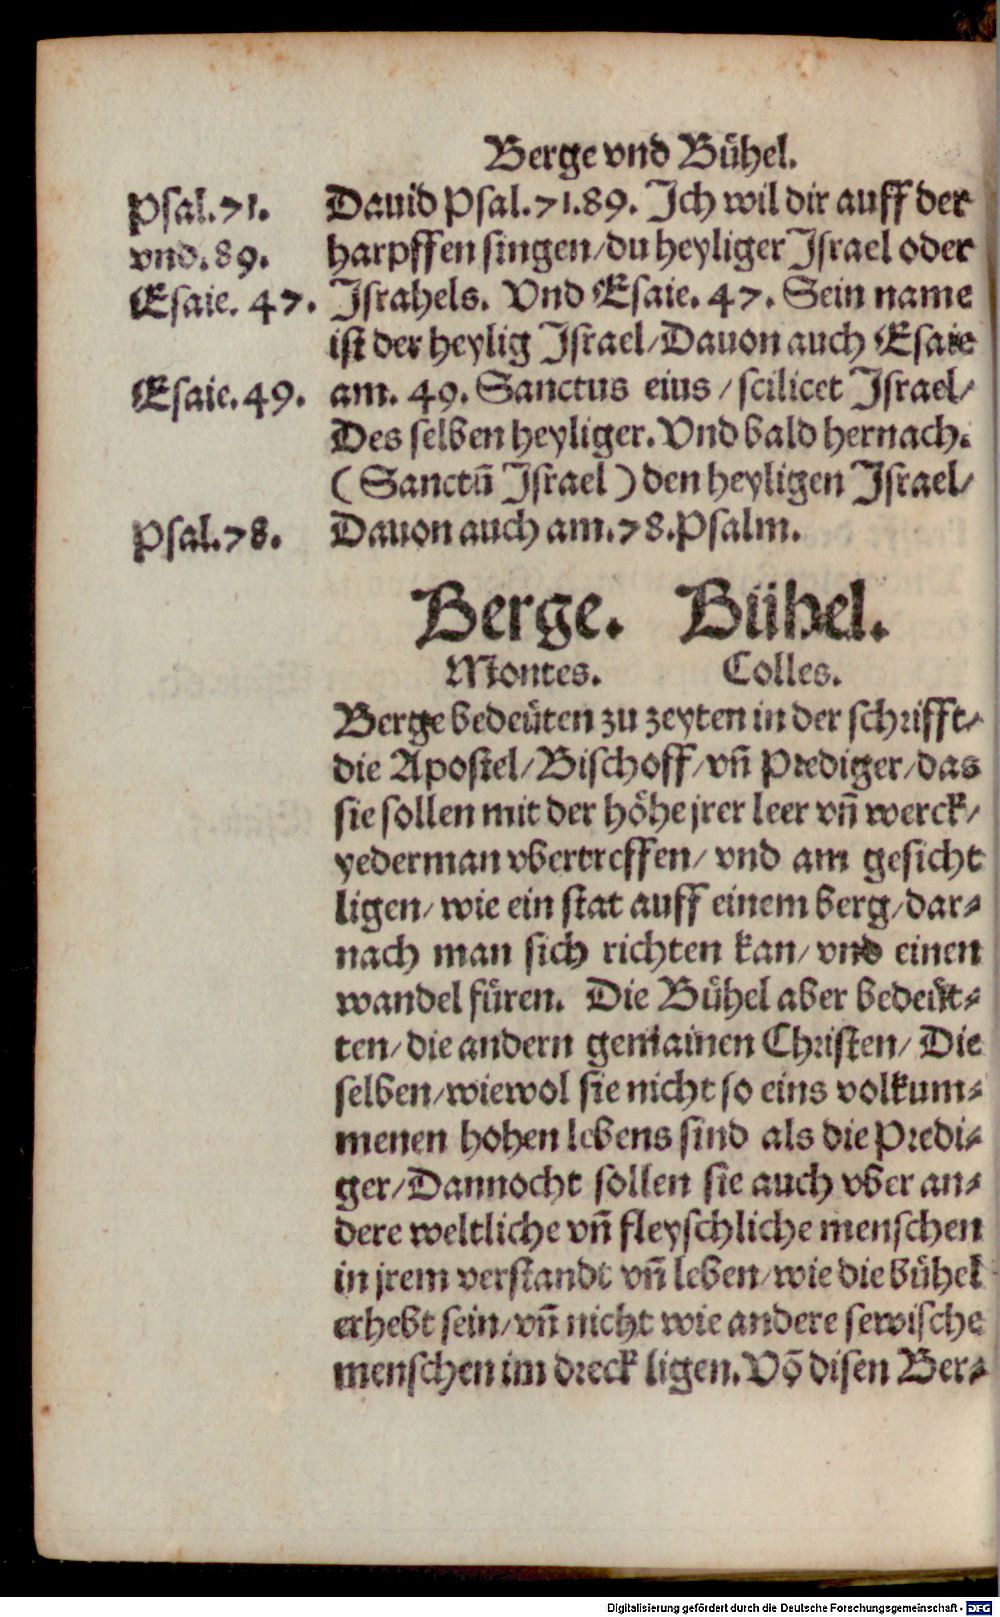 Berge vnd Bühel.
Psal. 71.
vnd. 89.
Esaie. 47.
Esaie. 49.
Psal. 78.
Dauid Psal. 71.89. Ich wil dir auff der
harpffen singen/du heyliger Israel oder
Israhels. Vnd Esaie. 47. Sein name
ist der heylig Israel/Dauon auch Esaie
am. 49. Sanctus eius/scilicet Israel/
Des selben heyliger. Vnd bald hernach.
(Sanctū Israel) den heyligen Israel/
Dauon auch am. 78. Psalm.
Berge. Bühel.
Montes. Colles.
Berge bedeüten zu zeyten in der schrifft/
die Apostel/Bischoff/vñ Prediger/das
sie sollen mit der höhe jrer leer vñ werck/
yederman vbertreffen/vnd am gesicht
ligen/wie ein stat auff einem berg/dar⸗
nach man sich richten kan/vnd einen
wandel füren. Die Bühel aber bedeüt⸗
ten/die andern gemainen Christen/Die
selben/wiewol sie nicht so eins volkum⸗
menen hohen lebens sind als die Predi⸗
ger/Dannocht sollen sie auch vber an⸗
dere weltliche vñ fleyschliche menschen
in jrem verstandt vñ leben/wie die bühel
erhebt sein/vñ nicht wie andere sewische
menschen im dreck ligen. Vō disen Ber⸗
Digitalisierung gefördert durch die Deutsche Forschungsgemeinschaft - DFG